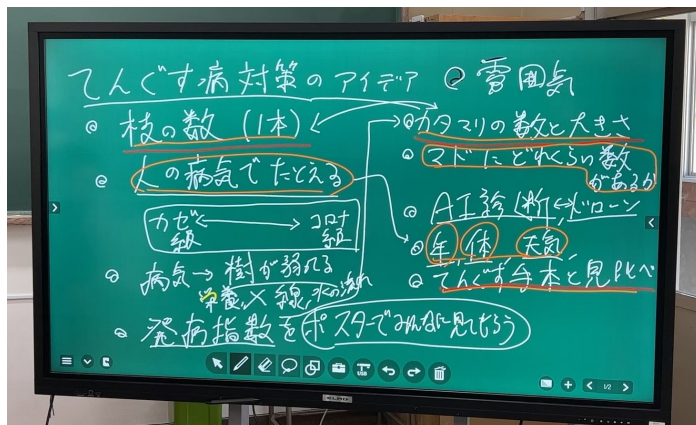 てんぐす病対策のアイデア
雰囲気
枝の数 (1本)
人の病気でたとえる
カゼ級 ←→ コロナ級
病気→樹が弱れる
栄養、× 線、水の流れ
発病指数をポスターでみんなに見てもらう
カタマリの数と大きさ
マドにどれくらい数があるか
AI診断 ↔ ドローン
年、体、天気
てんぐす手本と見比べ
1/2
ELMO